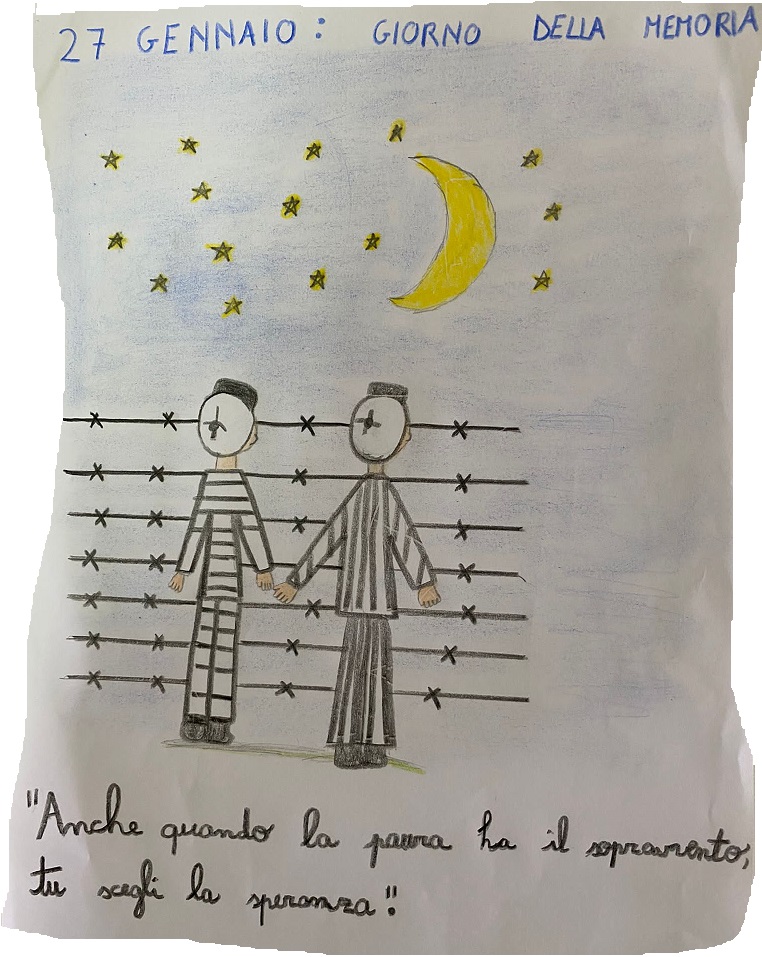 27 GENNAIO: GIORNO DELLA MEMORIA
"Anche quando la paura ha il sopravvento,
tu scegli la speranza".